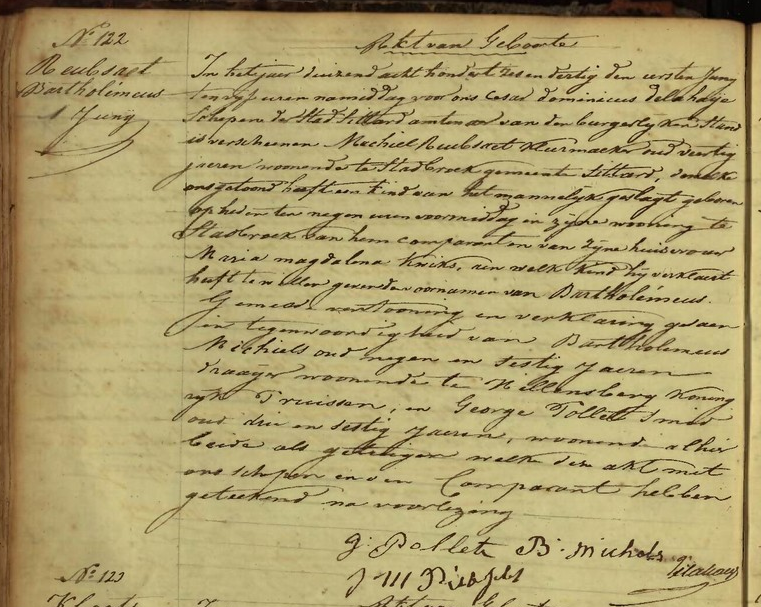 N.º 122
Akt van Geboorte
Reubsaet
Bartholemeus
1 Juny
In het jaer duizend acht hondert zes en dertig den eersten Juny
ten vyf uren namiddag voor ons Cesar dominicus delahaije
Schepen der Stad Sittard amtenaer van den burgerlyken Stand
is verscheenen Mechiel Reubsaet kleermaeker oud veertig
jaeren woonende te Stadbroek gemeente Sittard, dewelke
ons getoond heeft een kind van het mannelyk geslagt geboren
op heden ten negen uren voormiddag in zyne wooning te
Stadbroek van hem comparant en van zyne huisvrouw
Maria magdalena Kniks, aen welk kend hy verklaert
heeft te willen geven de voornamen van Bartholemeus.
Gemelde vertooning en verklaring gedaen
in tegenwoordigheid van Bartholemeus
Mechiels oud negen en sestig jaeren
draager woonende te Hillensberg Koning
ryk Pruissen, en George Pollett Smid
oud drie en sestig jaeren, woonend alhier
beide als getuigen welke dese akt met
ons schepen en den Comparant hebben
geteekend na voorlezing
g. Pollett B. Michels
J M
N.º 123
Akt van Geboorte